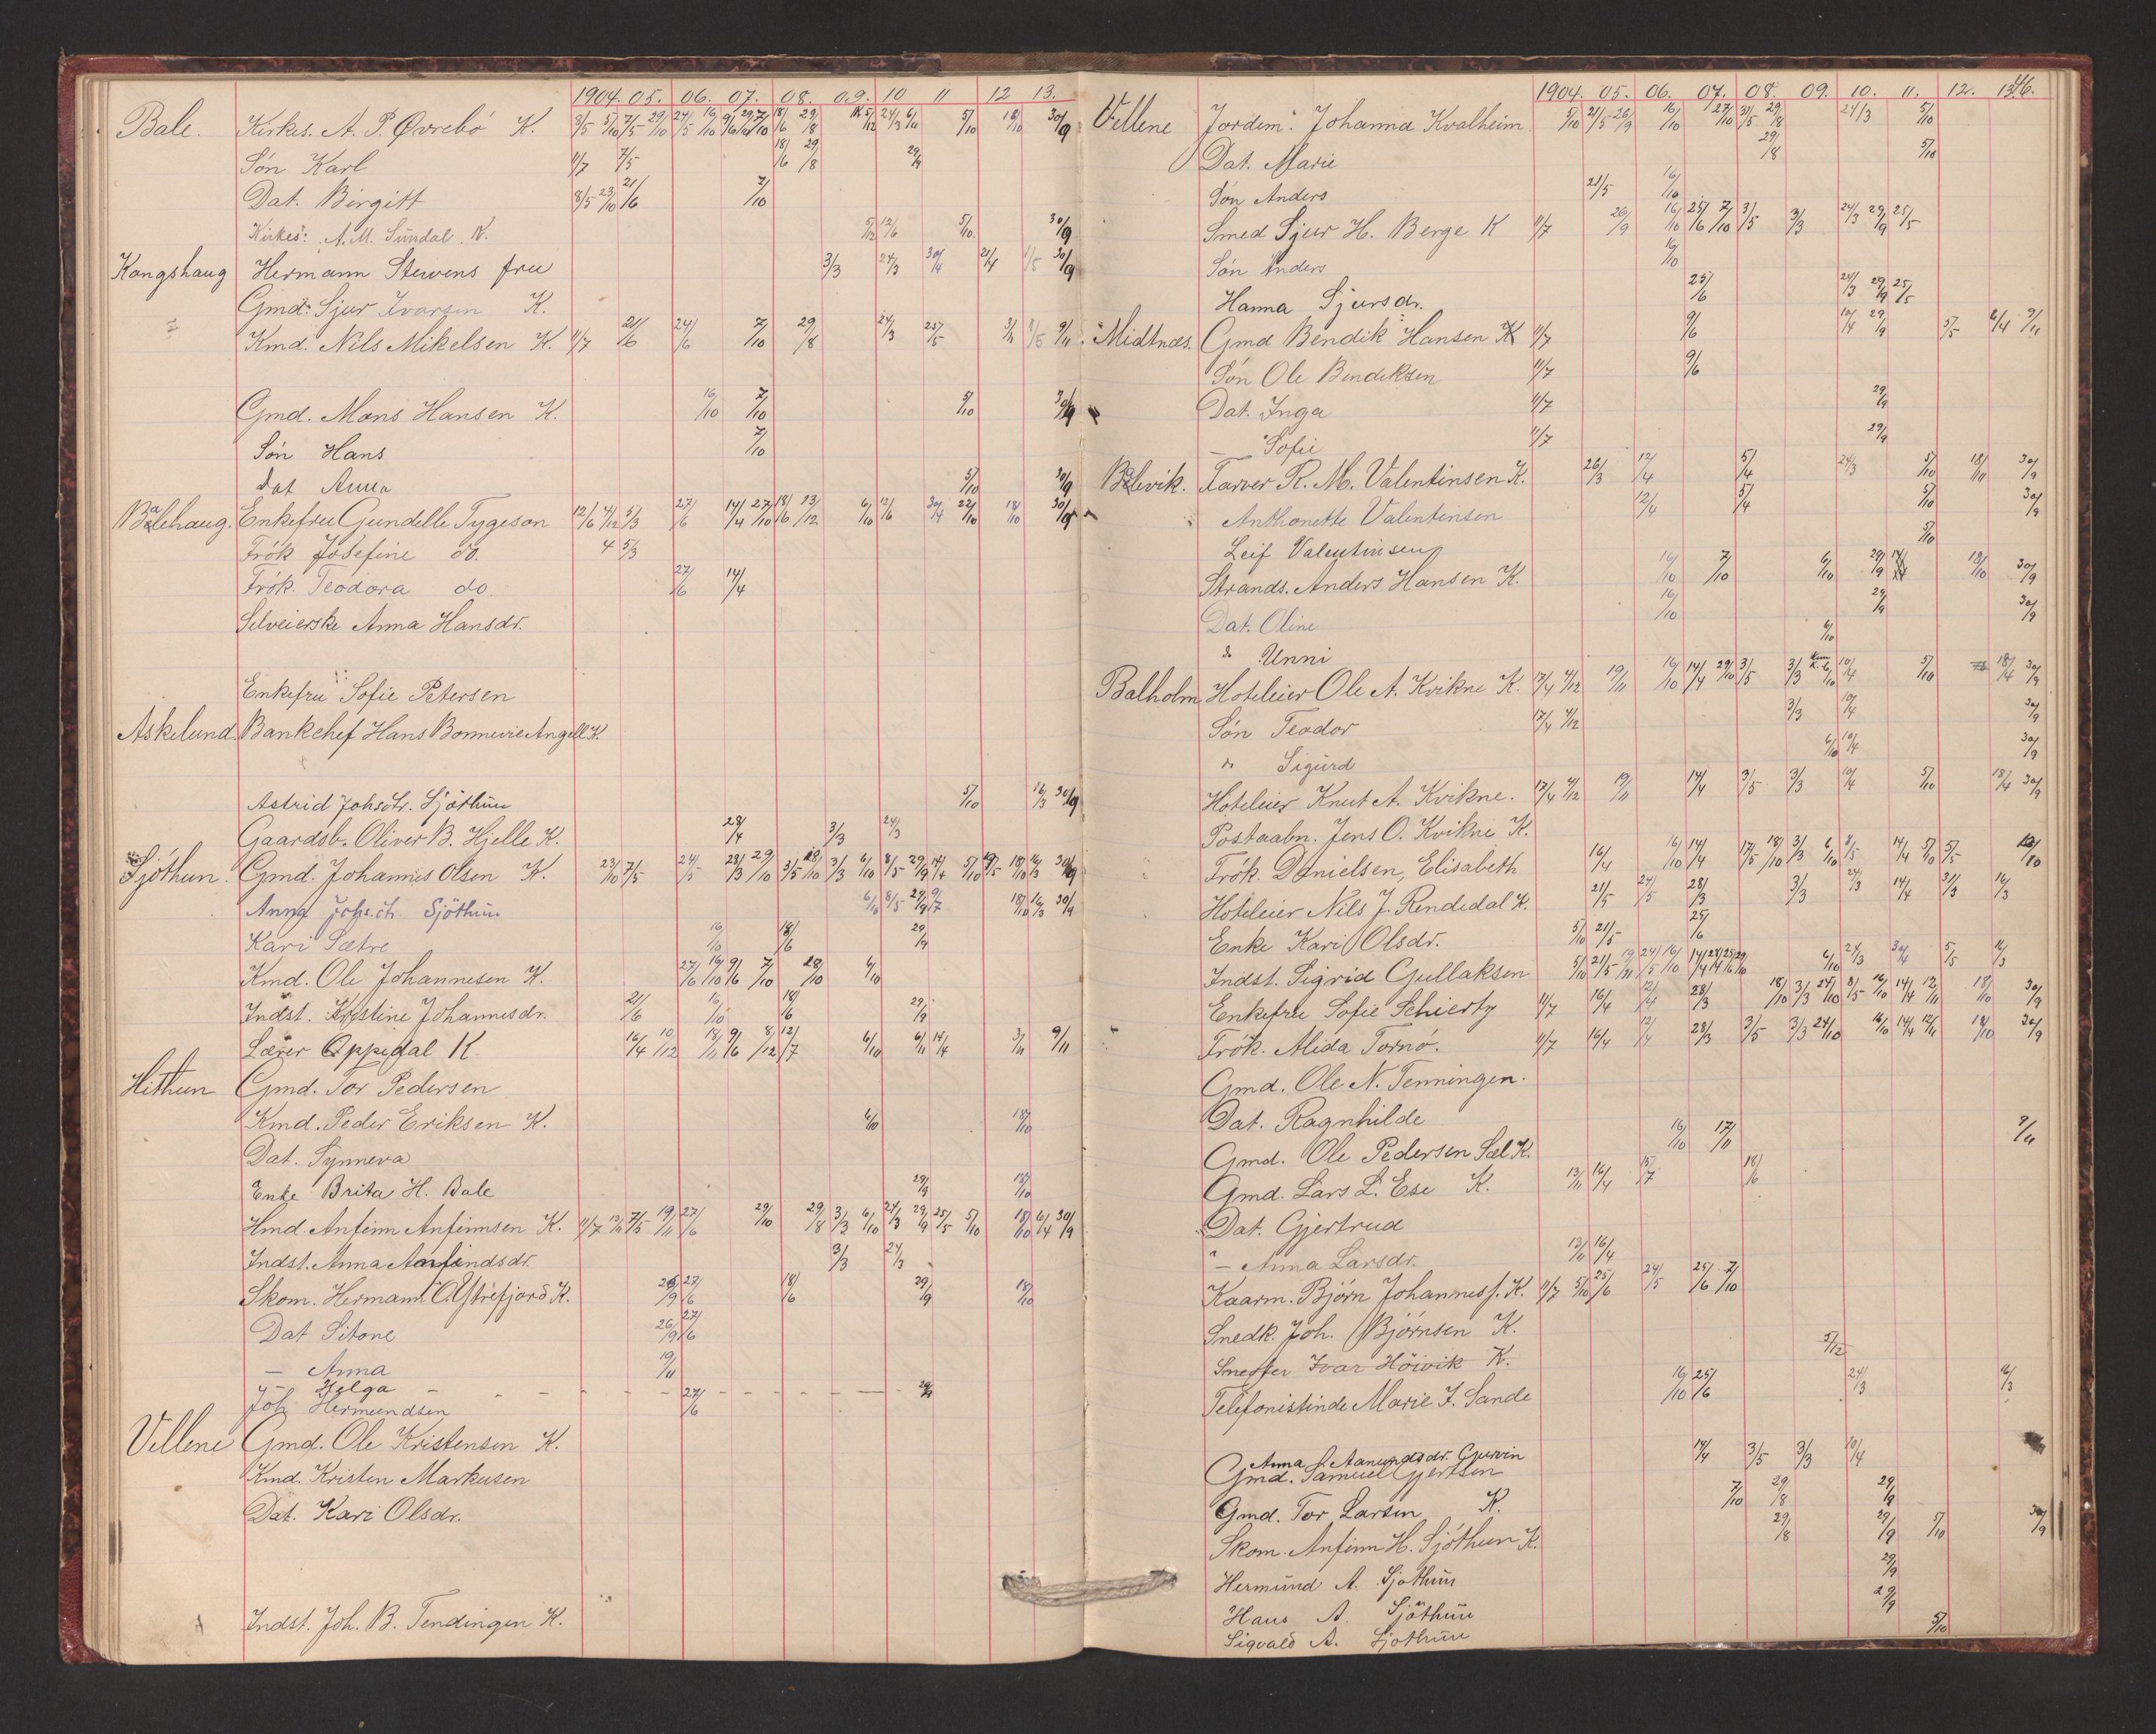 1904. 05. 06. 07. 08. 09. 10 11 12 13.
Bale. Kirkes. A. P. Øvrebö K. 8/5 5/10 7/5 29/10 24/5 16/10 9/6 29/10 7/10 18/6 29/8 5/12 24/3 5/10 18/10 30/9
Søn Karl 11/7 7/5 18/6 29/8 29/9
Dat. Birgitt 8/5 23/10 21/6 7/10
Kirkes: A. M. Sundal. K. 5/12 12/6 5/10. 30/9
Kongshaug Hermann Stevens frue 3/3 24/3 30/4 21/4 1/5 30/9
Gmd: Sjur Ivarsen K.
Kmd. Nils Mikelsen K. 11/7 21/6 24/6 7/10 29/8 24/3 25/5 3/11 1/5 9/11
Gmd. Mons Hansen K. 16/10 7/10 5/10 30/9
Søn Hans 7/10
dat Anna 5/10 30/9
Balehaug. Enkefru Gundelle Tygeson 12/6 4/12 5/3 27/6 14/4 27/10 18/6 13/12 6/10 12/6 30/4 22/10 18/10 30/9
Frök Josefine do. 4 5/3
Frök. Teodora do 27/6 14/4
Selveierske Anna Hansdr.
Enkefru Sofie Petersen
Askelund. Bankchef Hans Bonnevie Angell K.
Astrid Johsdtr. Sjöthun 5/10 16/3 30/9
Gaardsb. Oliver B. Hjelle K. 28/4 3/3 24/3
Sjöthun. Gmd. Johannes Olsen K. 23/10 7/5 24/5 28/3 29/10 3/5 18/10 3/3 6/10 8/5 29/9 14/4 5/10 19/5 18/10 16/3 30/9
Anna Johs.dtr. Sjöthun 6/10 8/5 29/9 9/7 18/10 16/3 30/9
Kari Sætre 16/10 18/6 29/9
Kmd. Ole Johannesen K. 27/6 16/10 9/6 7/10 28/10 6/10
Indst. Kristine Johannesdr. 21/6 16/10 18/6 29/9
Lærer Oppedal K. 16/4 10/12 18/11 9/6 8/12 12/7 6/10 6/11 14/4 3/11 9/11
Hithun Gmd. Tor Pedersen
Kmd. Peder Eriksen K. 6/10 18/10
Dat. Synneva
Enke Brita H. Bale 29/9 18/10
Hmd. Anfinn Anfinnsen K. 11/7 13/11 7/5 19/11 27/6 29/10 29/8 3/3 6/10 24/3 29/9 25/5 5/10 18/10 6/4 30/9
Indst. Anna Aanfindsdr. 3/3 24/3
Skom. Hermann O. Ystrefjord K. 26/9 27/6 18/6 29/9 18/10
Dat Sitone 26/9 27/6
— Anna 19/11
— Helga - - - - - - 29/9
Joh Hermundsen 27/6
Vellene Gmd. Ole Kristensen K.
Kmd. Kristen Markusen
Dat. Kari Olsdr.
Indst. Joh. B. Tendingen K.
46.
1904. 05. 06. 07. 08. 09. 10. 11. 12. 13.
Vellene Jordem. Johanna Kvalheim 5/10 21/5 26/9 16/10 27/10 31/5 29/8 24/3 5/10
Dat. Marie 29/8 5/10
Søn Anders 21/5 16/10
Smed Sjur H. Berge K 11/7 26/9 16/10 25/6 7/10 3/5 3/3 24/3 29/9 25/5
Søn Anders 16/10
Hanna Sjursdr. 25/6 24/3 29/9 25/5
Midtnæs. Gmd Bendik Hansen K 11/7 9/6 10/4 29/9 5/5 6/4 9/11
Søn Ole Bendiksen 11/7 9/6
Dat. Inga 11/7 29/9
— Sofie 11/7 29/9
Balevik. Farver R. M. Valentinsen K. 26/3 12/4 5/4 24/3 5/10 18/10 30/9
Anthonette Valentinsen 12/4 5/4 5/10 30/9
Leif Valentinsen 5/10
Strands. Anders Hansen K. 16/10 7/10 6/10 29/9 18/10 30/9
Dat. Oline 16/10 29/9 30/9
do Unni 6/10
Balholm Hoteleier Ole A. Kvikne K. 17/4 4/12 19/11 16/10 14/4 29/10 3/5 3/3 6/10 10/4 5/10 18/4 30/9
Søn Teodor 17/4 4/12 3/3 10/4 30/9
" Sigurd 6/10 10/4 30/9
Hoteleier Knut A. Kvikne. 17/4 4/12 19/11 14/4 3/5 3/3 10/4 5/10 18/4 30/9
Postaabn. Jens O. Kvikne K.
Frök. Danielsen, Elisabeth 16/4 16/10 14/4 17/5 18/10 3/3 6/10 8/5 14/4 5/10 5/5
Hoteleier Nils J. Rendedal K. 21/5 24/5 28/3 3/3 24/3 14/4 31/3 16/3
Enke Kari Olsdr. 5/10 21/5 25/6
Indst. Sigrid Gullaksen 5/10 21/5 19/11 24/5 16/10 14/4 28/4 25/6 29/10 6/10 24/3 30/4 5/5 16/3
Enkefru Sofie Schiertz 11/7 16/4 12/4 28/3 18/10 3/3 24/10 8/5 16/10 14/4 12/11 18/10 30/9
Frök. Alida Tornö. 11/7 16/4 12/4 28/3 3/5 3/3 24/10 16/10 14/4 12/11 18/10 30/9
Gmd. Ole N. Tenningen.
Dat. Ragnhilde
Gmd. Ole Pedersen Sæl K. 16/10 17/11 9/11
Gmd. Lars L. Ese K. 13/11 16/4 15/7 18/6
Dat. Gjertrud
" — Anna Larsdr. 13/11 16/4
Kaarm. Björn Johanness. K. 11/7 5/10 25/6 24/5 25/6 7/10
Snedk. Joh. Björnsen K.
Ivar Höivik K. 5/12
Telefonistinde Marie J. Sande 16/10 25/6 24/3 16/3
Anna Aamundsdr. Gjervin 14/4 3/5 3/3 10/4
Gmd. Samuel Gjertsen
Gmd. Tor Larsen K. 7/10 29/8 29/9
Skom. Anfinn H. Sjöthun K. 29/8 29/9 5/10 30/9
Hermund A. Sjöthun 29/9
Hans A. Sjöthun 29/9
Sigvald A. Sjothun 5/10